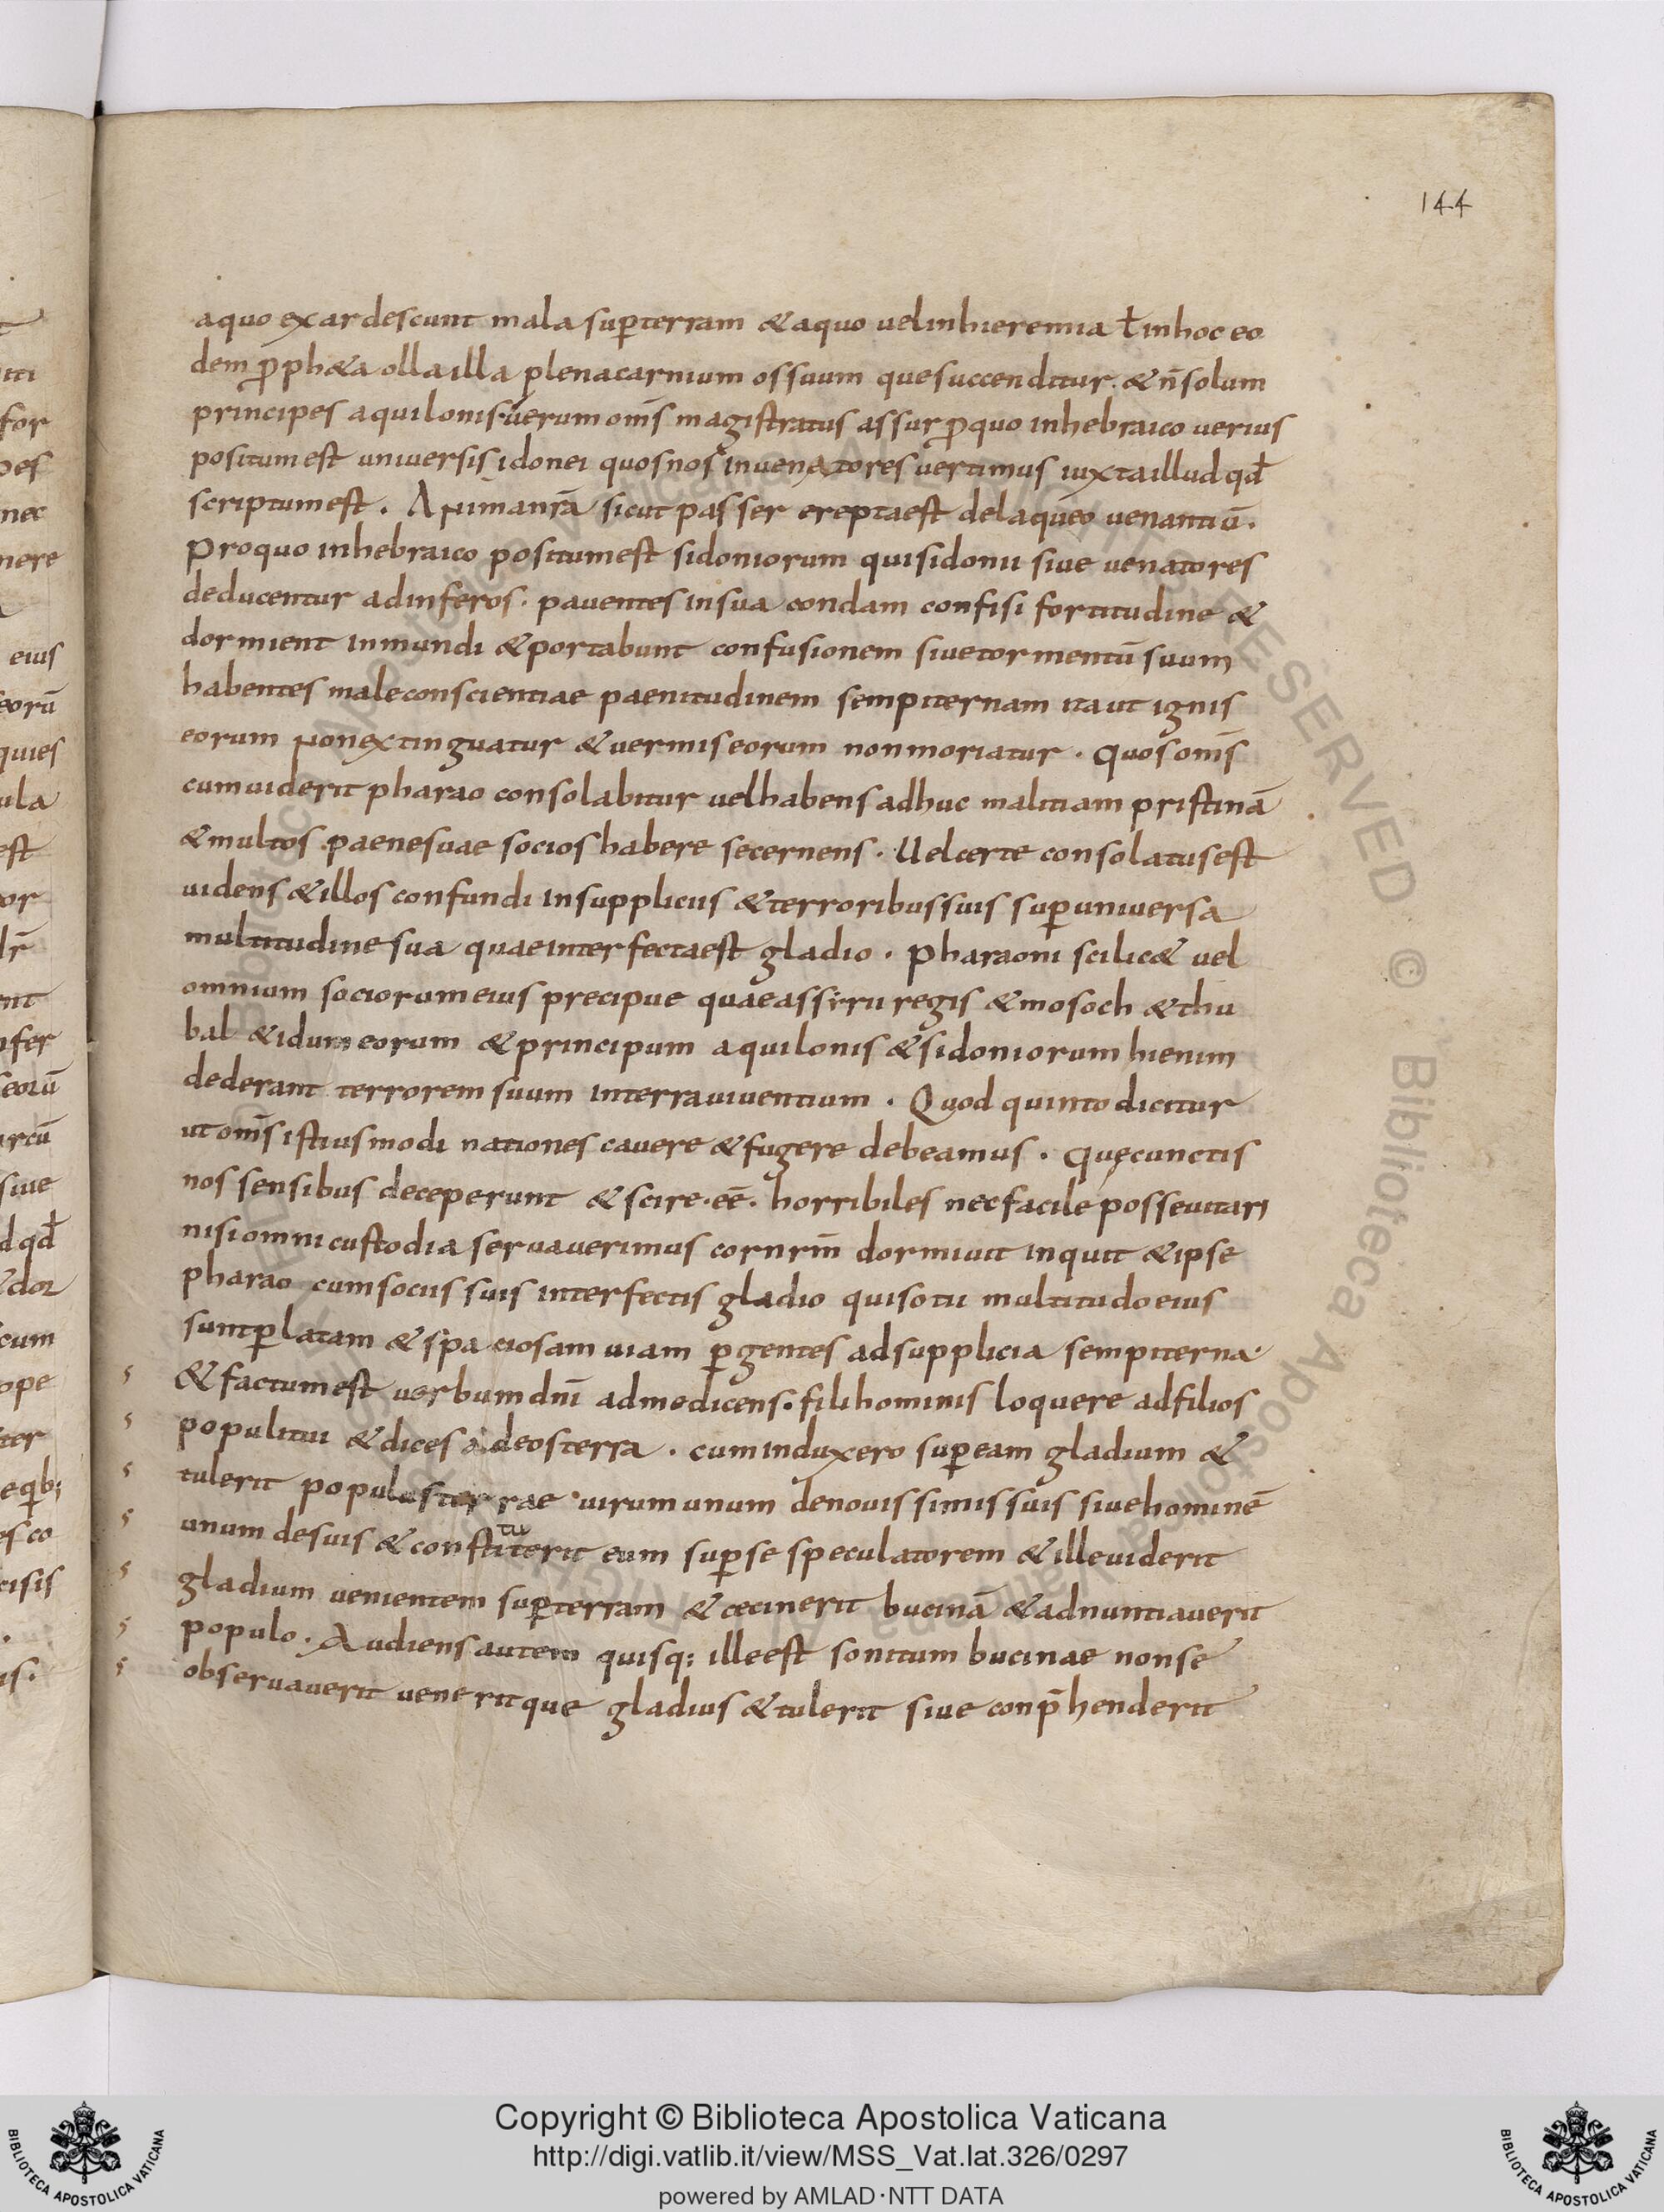 144
aquo exardescunt mala sup̄terram &aquo uelinhieremia ł inhoc eo
dem p̄ph&a ollailla plenacarnium ossuum quesuccenditur. & n̄ solum
principes aquilonis uerum om̄s magistratus assur p̄quo inhebraico uerius
positumest uniuersis idonei quosnos inuenatores uertimus iuxtaillud qđ
scriptumest. Animanr̄a sicut passer ereptaest delaqueo uenantiū.
Proquo inhebraico positumest sidoniorum quisidonii siue uenatores
deducentur adinferos. pauentes insua condam confisi fortitudine &
dormient inmundi &portabunt confusionem siuetormentū suum
habentes maleconscientiae paenitudinem sempiternam itaut ignis
eorum nonextinguatur &uermiseorum nonmoriatur. quosom̄s
cumuiderit pharao consolabitur uelhabens adhuc malitiam pristinā
&multos paenesuae socios habere secernens. Uelcerte consolatusest
uidens &illos confundi insuppliciis &terroribussuis sup̄uniuersa
multitudine sua quaeinterfectaest gladio. pharaoni scilic& uel
omnium sociorumeius precipue quaeassirii regis &mosoch &thu
bal &idumeorum &principum aquilonis &sidoniorum hienim
dederant terrorem suum interrauiuentium. Quod quinto dicitur
utom̄s istiusmodi nationes cauere &fugere debeamus. quęcunctis
nos sensibus deceperunt &scire.eē. horribiles necfacile posseuitari
nisiomnicustodia seruauerimus cornr̄m dormiuit inquit &ipse
pharao cumsociis suis interfectis gladio quisotii multitudoeius
suntp̄latam &spaciosam uiam p̄gentes adsupplicia sempiterna.
&factumest uerbumdn̄i admedicens. filihominis loquere adfilios
populitui &dices adeosterra. cuminduxero sup̄eam gladium &
tulerit populusterrae uirumunum denouissimissuis siuehominē
unum desuis &constituterit eum sup̄se speculatorem &illeuiderit
gladium uenientem sup̄terram &cecinerit bucinā &adnuntiauerit
populo. Audiensautem quisq; illeest sonitum bucinae nonse
obseruauerit ueneritque gladius &tulerit siue conp̄henderit
Copyright © Biblioteca Apostolica Vaticana
http://digi.vatlib.it/view/MSS_Vat.lat.326/0297
powered by AMLAD·NTT DATA